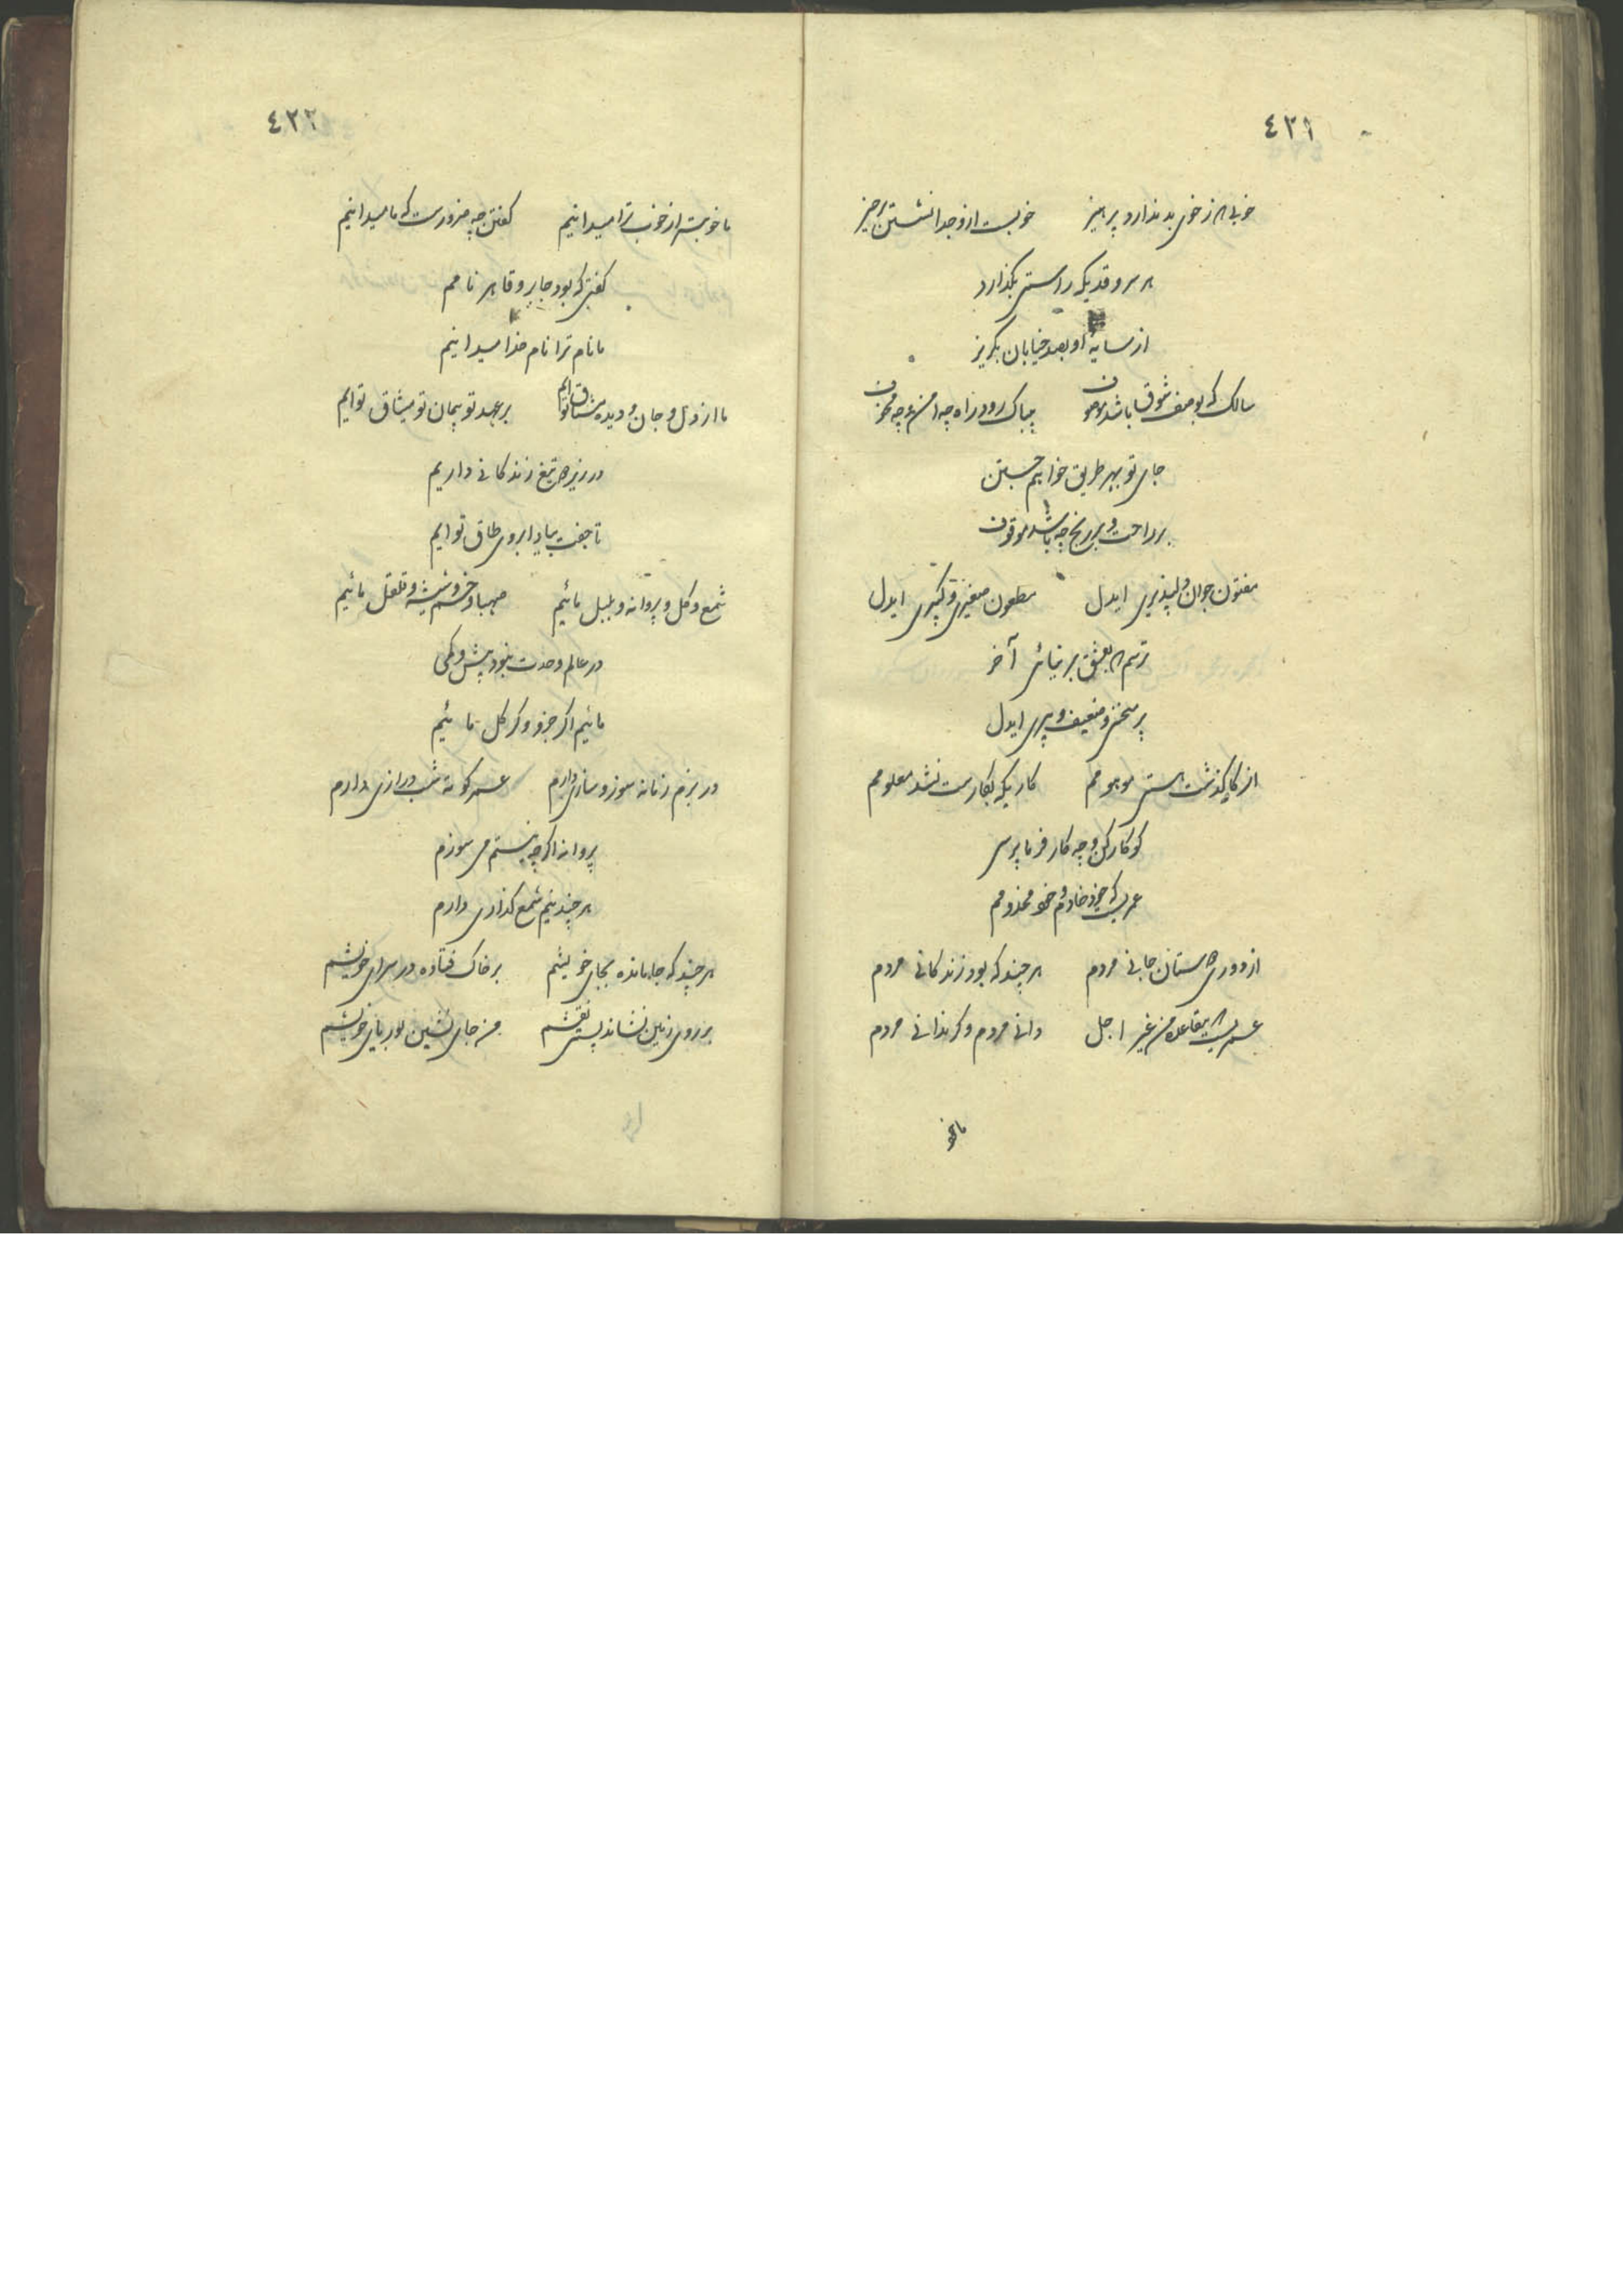 ٤٢١
خوبی که ز خوی بد ندارد پرهیز خوبست ازو جدا نشستن برخیز
هر سرو قدیکه راستی بگذارد
از سایهٔ او بصد خیابان بگریز
سالک که بوصف شوق باشد موصوف بیباک رود براه چه امن و چه مخوف
جای تو بهر طریق خواهیم جستن
بر راحت و بر رنج چه باشد موقوف
مفتون جوان دلپذیری ایدل مطعون صغیری و کبیری ایدل
ترسم که بعشق بر نیائی آخر
پر سختی و ضعیف و پیری ایدل
از کار گذشت هستی موهومم کاریکه بکارست نشد معلومم
کو کارکن و چه کارفرما پرسی
عمریست که خود خادم و خود مخدومم
از دوری دلستان جانی مردم هر چند که بود زندگانی مردم
عمریست که بیقاعده من غیر اجل دانی مردم و گر ندانی مردم
ما خوبتر
٤٢٢
ما خوبتر از خوب ترا میدانیم گفتن چه ضرورست که ما میدانیم
گفتی که بود جابر و قاهر نامم
ما نام ترا نام خدا میدانیم
ما از دل و جان و دیده مشتاق توایم بر عهد تو پیمان تو میثاق توایم
در زیر تیغ زندگانی داریم
تا جفت بیاد ابروی طاق توایم
شمع و گل و پروانه و بلبل مائیم صهبا و خم و شیشه و قلقل مائیم
در عالم وحدت نبود بیش و کمی
مائیم اگر جزو و گر کل مائیم
در بزم زمانه سوز و سازی دارم عمر کوته شب درازی دارم
پروانه اگر چه نیستم می سوزم
هر چند نیم شمع گدازی دارم
هر چند که جا مانده بجای خویشم بر خاک فتاده در سرای خویشم
بر روی زمین نشانده پستی نقشم من جای نشین بوریای خویشم